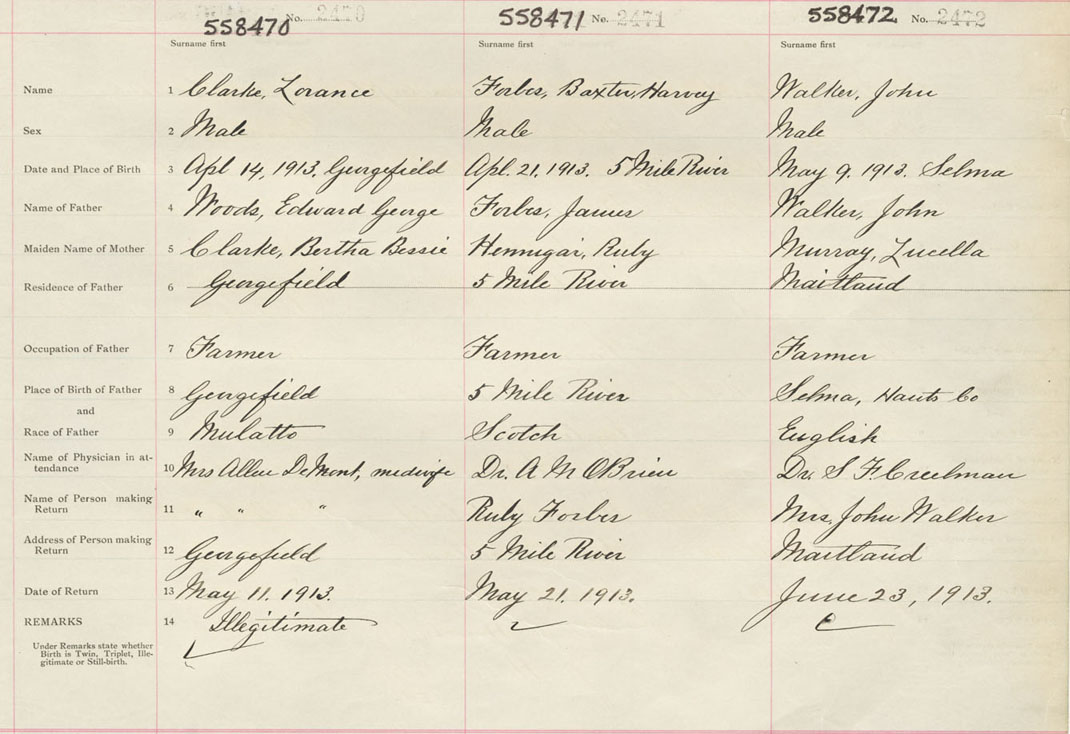 558470 No. 2470 558471 No. 2471 558472 No. 2472
Surname first Surname first Surname first
Name 1 Clarke, Lorance Forbes, Baxter, Harvey Walker, John
Sex 2 Male Male Male
Date and Place of Birth 3 Apl 14, 1913. Georgefield Apl. 21, 1913. 5 Mile River May 9. 1913. Selma
Name of Father 4 Woods, Edward George Forbes, James Walker, John
Maiden Name of Mother 5 Clarke, Bertha Bessie Hennigar, Ruby Murray, Lucella
Residence of Father 6 Georgefield 5 Mile River Maitland
Occupation of Father 7 Farmer Farmer Farmer
Place of Birth of Father 8 Georgefield 5 Mile River Selma, Hants Co
and
Race of Father 9 Mulatto Scotch English
Name of Physician in at-
tendance 10 Mrs Allen DeMont, midwife Dr. A M OBrien Dr. S F. Creelman
Name of Person making
Return 11 " " " Ruby Forbes Mrs. John Walker
Address of Person making
Return 12 Georgefield 5 Mile River Maitland
Date of Return 13 May 11. 1913. May 21. 1913. June 23, 1913.
REMARKS 14 Illegitimate
Under Remarks state whether
Birth is Twin, Triplet, Ille-
gitimate or Still-birth.